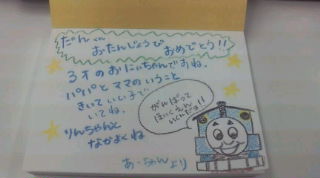 だんくん
おたんじょうび
おめでとう!!
3才のおにいちゃんですね。
パパとママのいうこと
きいていい子で
いてね。
りんちゃんと
なかよくね
がんばって
ほいくえん
いくだョ!!
あーちゃんより